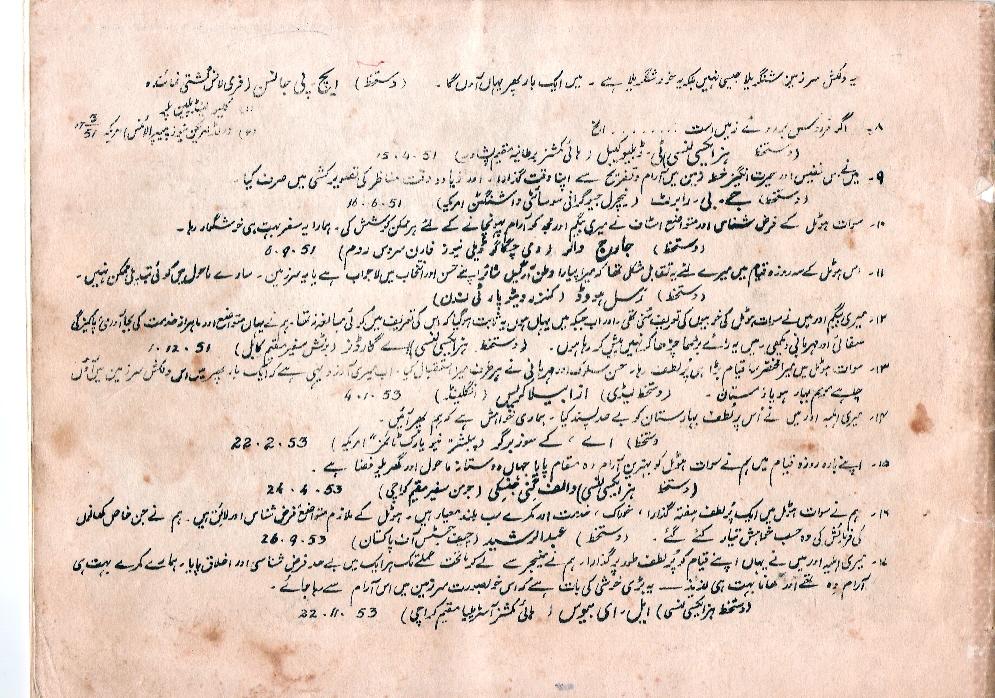 یہ دلکش سرزمین شنگریلا جیسی نہیں بلکہ یہ خود شنگریلا ہے ۔ میں ایک بار پھر یہاں آؤں گا ۔ (دستخط) ایچ ۔ پی جانسن (فری لانس گشتی نمائندہ
۸۔ اگر فردوس بروئے زمین است ......... الخ
(دستخط ہز ایکسی لنسی) ہائی کمشنر برطانیہ مقیم پشاور) 15.4.51
۹۔ میں نے اس نفیس اور حیرت انگیز خطہ زمین میں آرام و تفریح سے اپنا وقت گذارا ۔ اور زیادہ وقت مناظر کی تصویر کشی میں صرف کیا ۔
(دستخط) جے ۔ بی ۔ رابرٹ (نیچرل جیوگرافی سوسائٹی واشنگٹن امریکہ) 16.6.51
۱۰۔ سوات ہوٹل کے فرض شناس اور متواضع اسٹاف نے میری بیگم اور مجھ کو آرام پہونچانے کے لئے ہر ممکن کوشش کی ۔ ہمارا یہ سفر بہت ہی خوشگوار رہا ۔
(دستخط) جارج والر (دی چکاگو ڈیلی نیوز فارن سروس روم) 6.9.51
۱۱۔ اس ہوٹل کے سہ روزہ قیام میں میرے لئے یہ تقابل مشکل تھا کہ میرا پیارا وطن اپنے حسن اور انتخاب میں لاجواب ہے یا یہ سرزمین ۔ سارے ماحول میں کوئی تبدیلی ممکن نہیں ۔
(دستخط) رسل ہووڈ (کنزرویٹو پارٹی لندن)
۱۲۔ میری بیگم اور میں نے سوات ہوٹل کی خوبیوں کی تعریف سنی تھی ۔ اور اب جبکہ میں یہاں ہوں یہ ثابت ہو گیا کہ اس کی تعریف میں کوئی مبالغہ نہ تھا ۔ ہم نے یہاں متواضع اور ماہرانہ خدمت کی بجا آوری، پاکیزگی
صفائی اور مہربانی دیکھی ۔ میں یہ رائے بڑھا چڑھا کر نہیں پیش کر رہا ہوں ۔ (دستخط ہز ایکسی لنسی) اے گارڈنر (برٹش سفیر مقیم کابل) 1.12.51
۱۳۔ سوات ہوٹل میں میرا مختصر سا قیام بڑا ہی پر لطف رہا ۔ حسن سلوک اور مہربانی نے ہر طرف میرا استقبال کیا ۔ اب میری آرزو یہی ہے کہ ایک بار پھر میں اس دلکش سرزمین میں آؤں
چاہے موسم بہار ہو یا زمستان ۔ (دستخط لیڈی) (انگلینڈ) 4.1.53
۱۴۔ میری اہلیہ اور میں نے اس پر لطف بہارستان کو بے حد پسند کیا ۔ ہماری خواہش ہے کہ ہم پھر آئیں ۔
(دستخط) اے ، کے سوزبرگر (پبلشر "نیویارک ٹائمز" امریکہ) 22.2.53
۱۵۔ اپنے بارہ روزہ قیام میں ہم نے سوات ہوٹل کو بہترین آرام دہ مقام پایا جہاں دوستانہ ماحول اور گھریلو فضا ہے ۔
(دستخط ہز ایکسی لنسی) (جرمن سفیر مقیم کراچی) 24.4.53
۱۶۔ ہم نے سوات ہوٹل میں ایک پر لطف ہفتہ گذارا ، خوراک ، خدمت اور کمرے سب بلند معیار ہیں ۔ ہوٹل کے ملازم متواضع فرض شناس اور لائق ہیں ۔ ہم نے جن خاص کھانوں
کی فرمائش کی وہ حسب خواہش تیار کئے گئے ۔ (دستخط) عبدالرشید (چیف جسٹس آف پاکستان) 26.9.53
۱۷۔ میری اہلیہ اور میں نے یہاں اپنے قیام کو پر لطف طور پر گذارا ۔ ہم نے منیجر سے لے کر ماتحت عملے تک ہر ایک میں بے حد فرض شناسی اور اخلاق پایا ، ہمارے کمرے بہت ہی
آرام دہ تھے اور کھانا بہت ہی لذیذ ۔ یہ بڑی خوشی کی بات ہے کہ اس خوبصورت سرزمین میں اس آرام سے رہا جائے ۔
(دستخط ہز ایکسی لنسی) ایل ۔ ای بیوس (ہائی کمشنر آسٹریلیا مقیم کراچی) 22.11.53